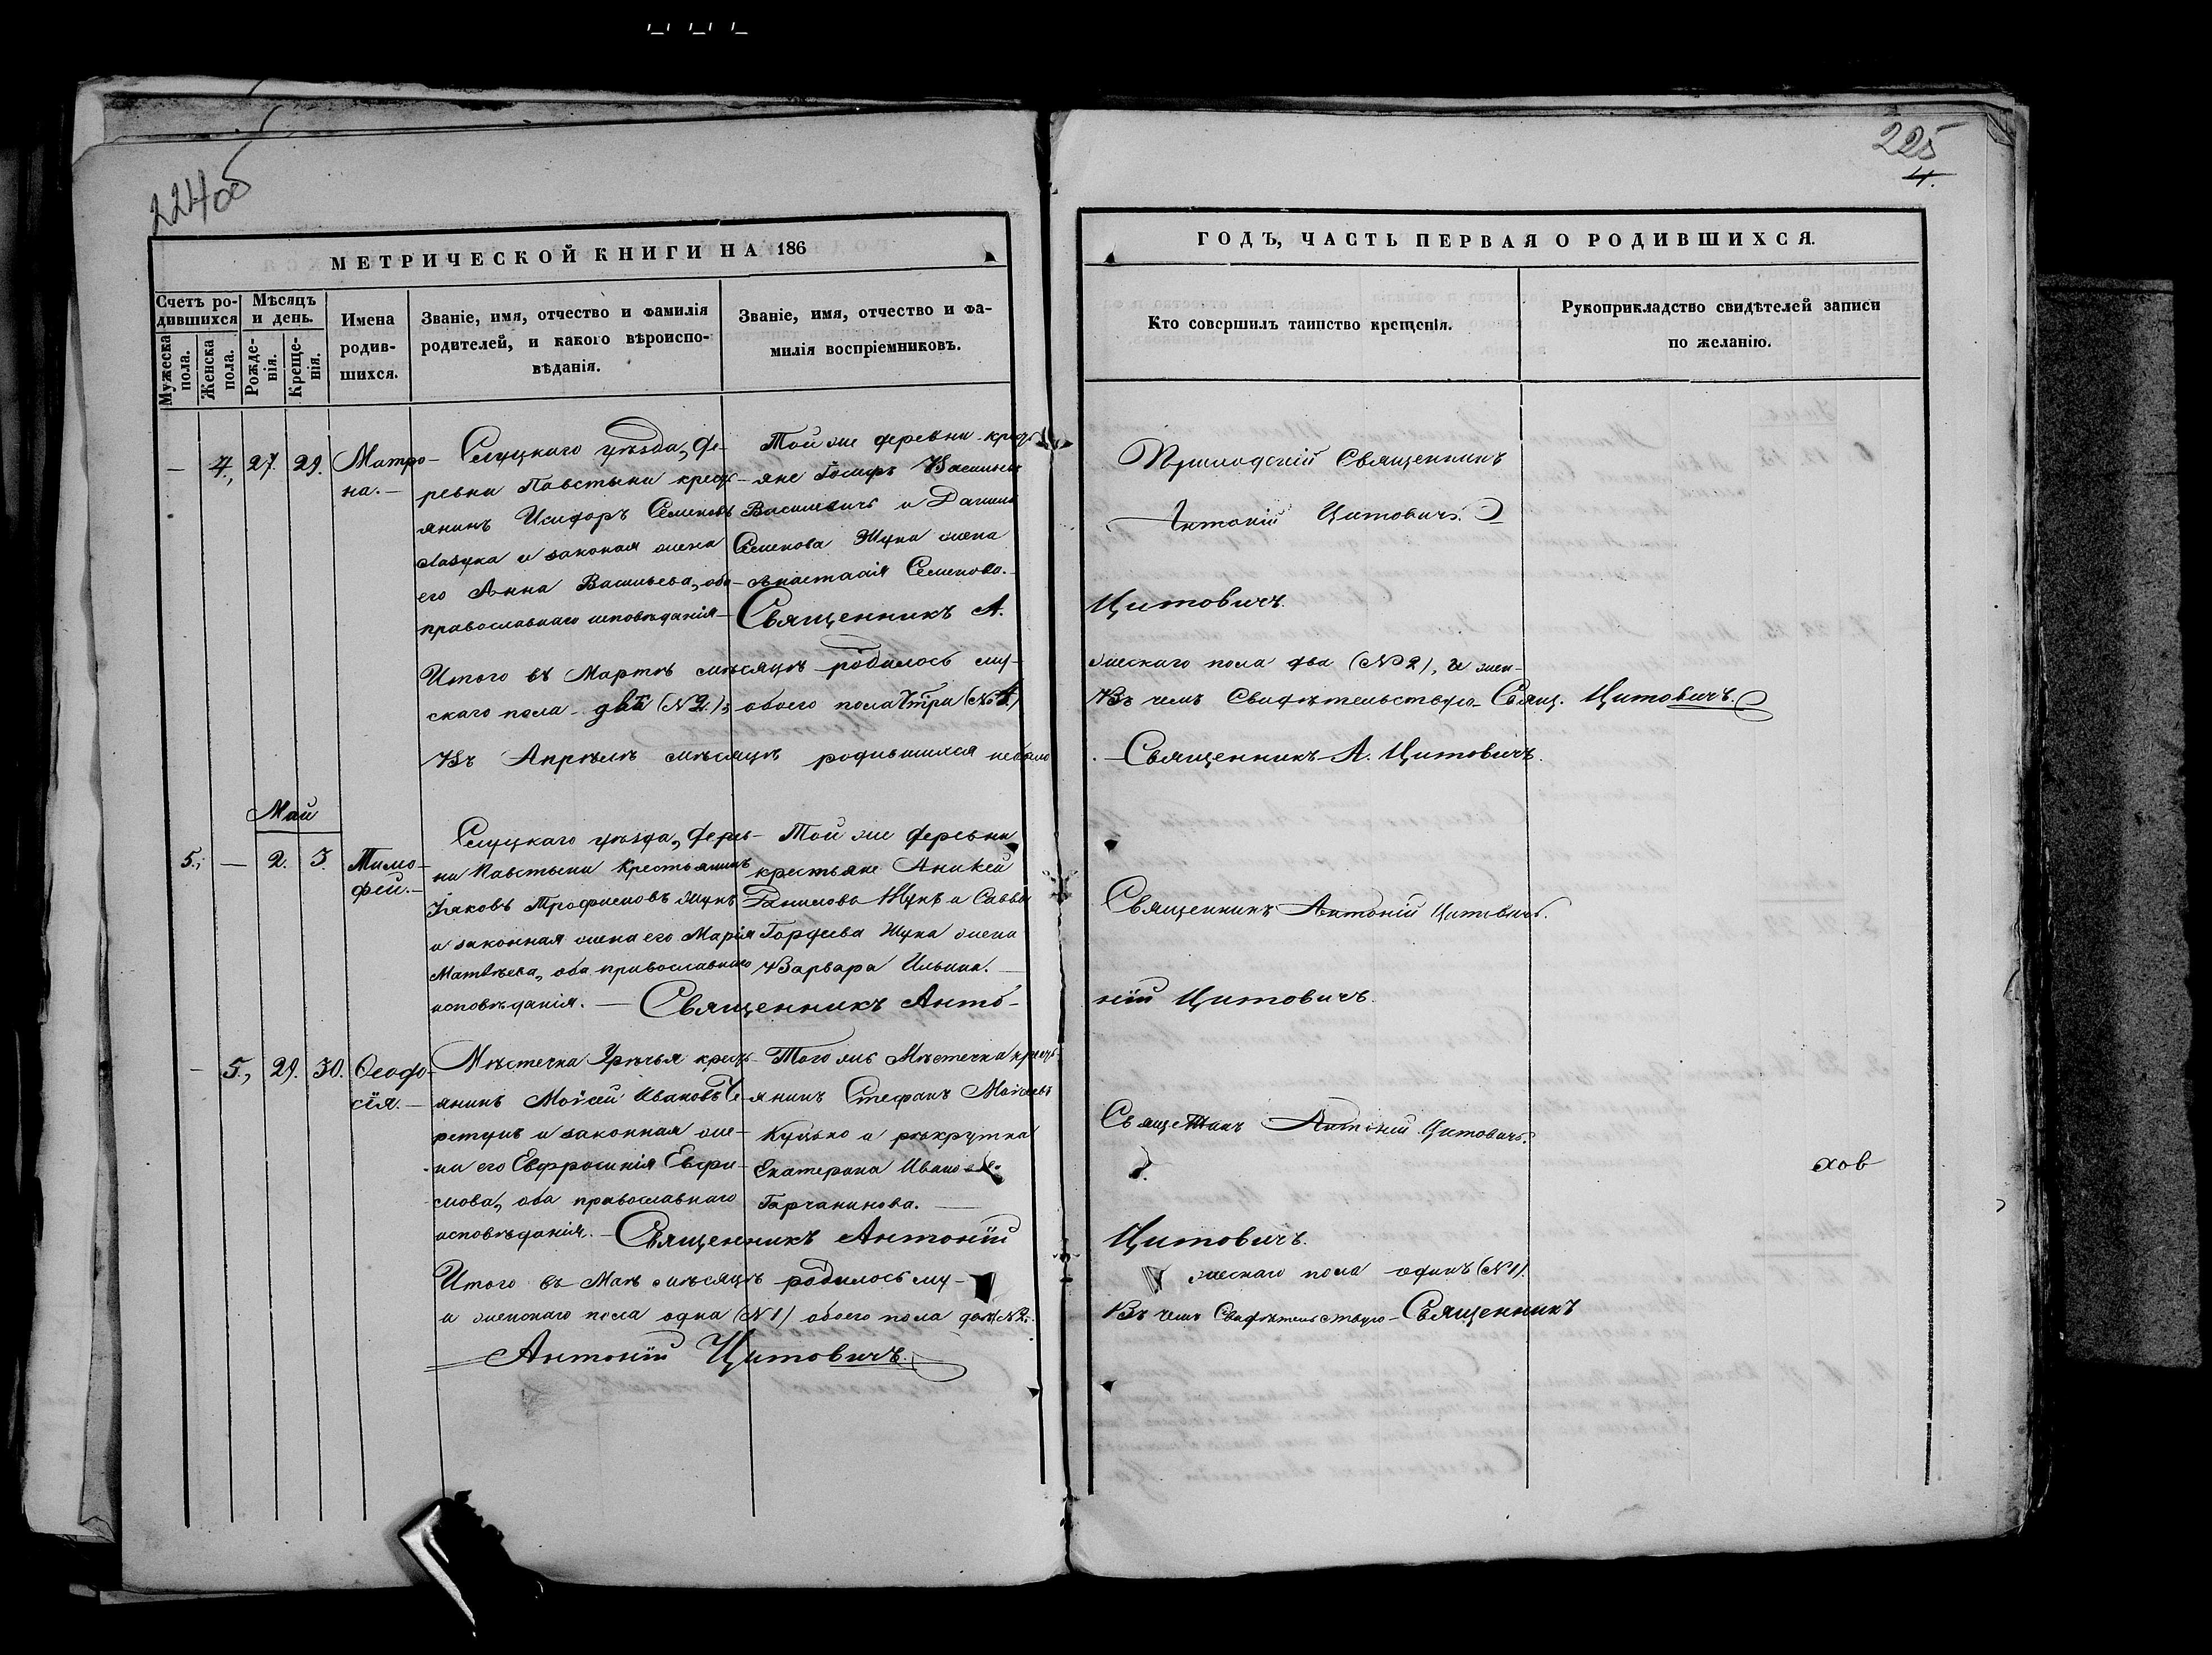 224об
225
4.
МЕТРИЧЕСКОЙ КНИГИ НА 186
ГОДЪ, ЧАСТЬ ПЕРВАЯ О РОДИВШИХСЯ.
Счетъ ро-
дившихся
Мужеска пола.
Женска пола.
Мѣсяцъ
и день.
Рожде-
нія.
Креще-
нія.
Имена
родив-
шихся.
Званіе, имя, отчество и фамилія
родителей, и какого вѣроиспо-
вѣданія.
Званіе, имя, отчество и фа-
милія воспріемниковъ.
Кто совершилъ таинство крещенія.
Рукоприкладство свидѣтелей записи
по желанію.
— 4, 27. 29. Матро-
на.—
Слуцкаго уѣзда, де-
ревни Павстыни крестъ-
янинъ Исидоръ Семеновъ
и законая жена
его Анна Васильева, оба
православнаго исповѣданія—
Той же деревни крестъ-
яне Іосифъ
Василевичъ и
Семенова Жука жена
Анастасія Семенова.—
Священникъ А.
Приходскій Священникъ
Антоній Цитовичъ.
Цитовичъ.
Итого въ Мартѣ мѣсяцѣ родилось му-
жескаго пола два (№ 2), и жен-
скаго пола двѣ (№ 2), обоего пола (№ 4)
Въ чемъ Свидѣтельствую Свящ. Цитовичъ.
Въ Апрѣлѣ мѣсяцѣ родившихся небыло
— Священникъ А. Цитовичъ.
Май
5., — 2. 3. Тимо-
фей.—
Слуцкаго уѣзда, дерев-
ни Павстыни Крестьянинъ
Іяковъ Трофимовъ Жукъ
и законная жена его Марія
Матвѣева, оба православнаго
исповѣданія. —
Той же деревни
крестьяне Аникей
Даниловъ Жукъ и Саввы
Гордѣева Жука жена
Варвара Ильина. —
Священникъ Анто-
Священникъ Антоній Цитовичъ.
ній Цитовичъ.
— 5, 29. 30. Ѳеодо-
сія.—
Мѣстечка Урѣчья крестъ-
янинъ Мойсей Ивановъ Че-
и законная же-
на его Евфросинія Евфи-
мова, оба православнаго
исповѣданія.—
Того жъ Мѣстечка крестъ-
янинъ Стефанъ Мойсеевъ
Кулько и рѣкрутка
Екатерина Иванова
Гарчанинова. —
Священникъ Антоній
Священникъ Антоній Цитовичъ.
хов
Цитовичъ.
Итого въ Маѣ мѣсяцѣ родилось му-
жескаго пола одинъ (№ 1).
и женскаго пола одна (№ 1) обоего пола два (№ 2.
Въ чемъ Свидѣтельствую Священникъ
Антоній Цитовичъ.